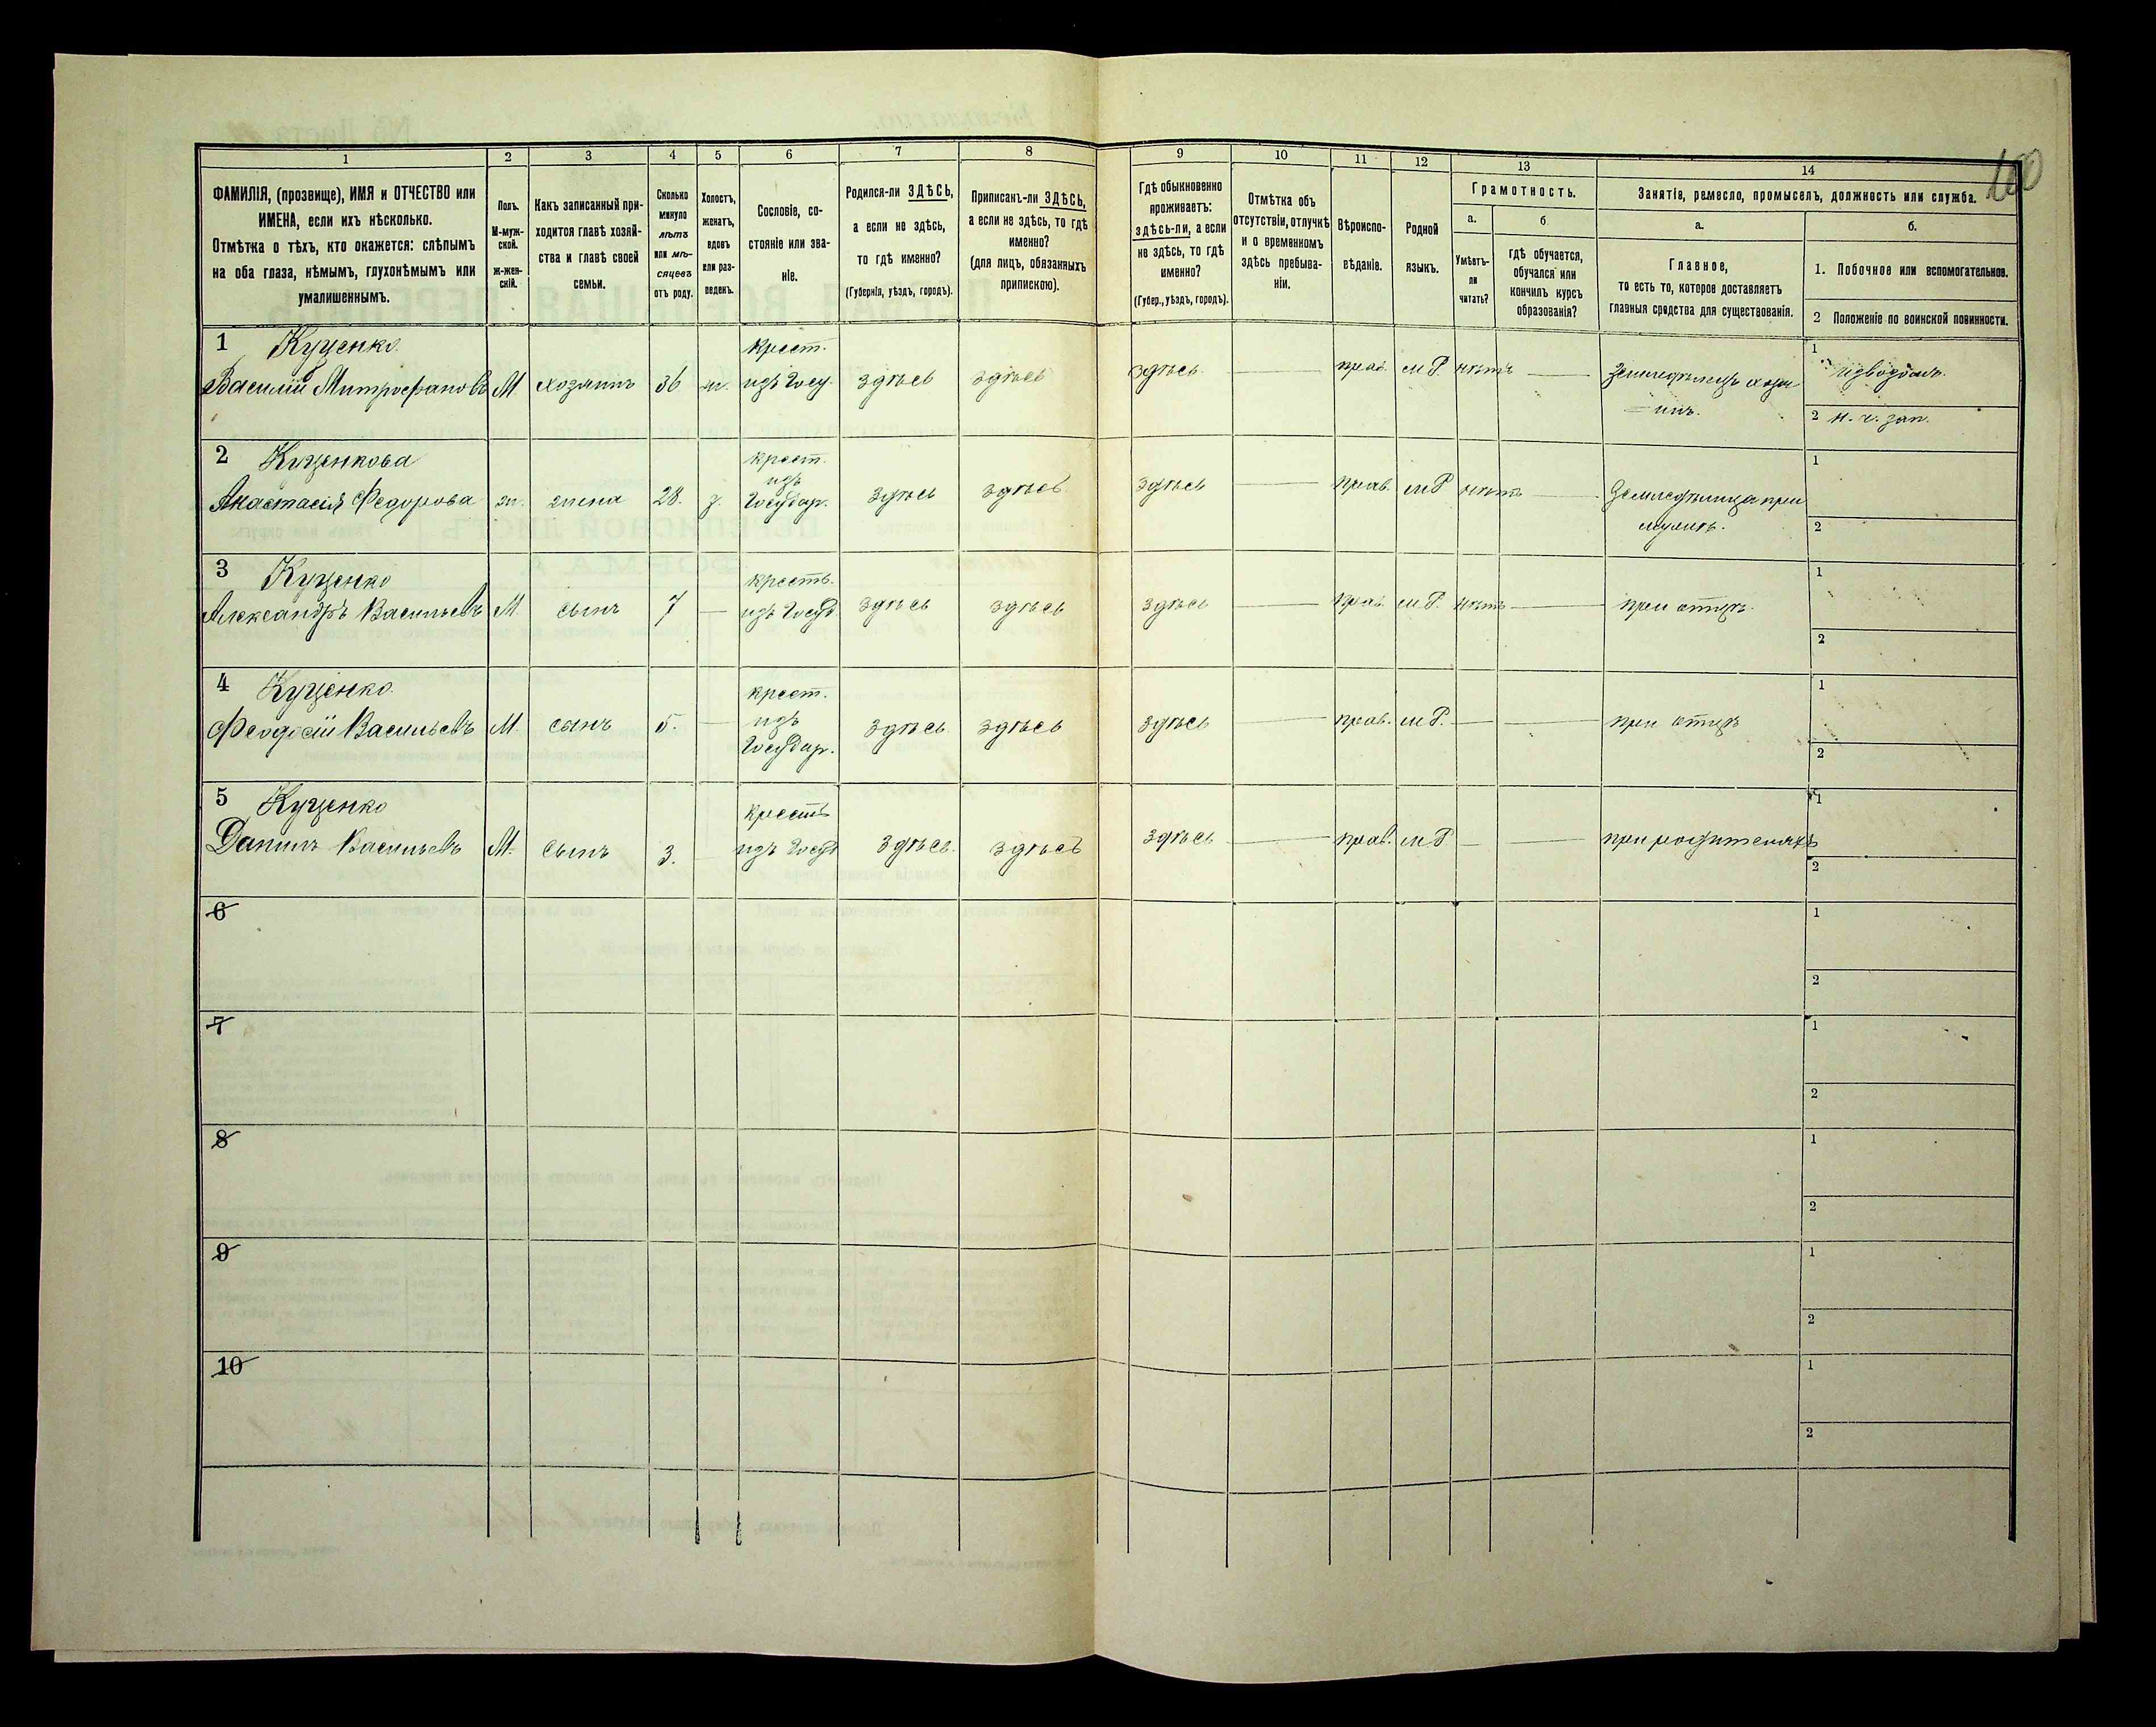 100
1 2 3 4 5 6 7 8 9 10 11 12 13 14
ФАМИЛІЯ, (прозвище), ИМЯ и ОТЧЕСТВО или
ИМЕНА, если ихъ нѣсколько.
Отмѣтка о тѣхъ, кто окажется: слѣпымъ
на оба глаза, нѣмымъ, глухонѣмымъ или
умалишеннымъ.
Полъ.
М-муж-
ской.
ж-жен-
скій.
Какъ записанный при-
ходится главѣ хозяй-
ства и главѣ своей
семьи.
Сколько
минуло
лѣтъ
или мѣ-
сяцевъ
отъ роду.
Холостъ,
женатъ,
вдовъ
или раз-
веденъ.
Сословіе, со-
стояніе или зва-
ніе.
Родился-ли ЗДѢСЬ,
а если не здѣсь,
то гдѣ именно?
(Губернія, уѣздъ, городъ).
Приписанъ-ли ЗДѢСЬ,
а если не здѣсь, то гдѣ
именно?
(для лицъ, обязанныхъ
припискою).
Гдѣ обыкновенно
проживаетъ:
здѣсь-ли, а если
не здѣсь, то гдѣ
именно?
(Губер., уѣздъ, городъ).
Отмѣтка объ
отсутствіи, отлучкѣ
и о временномъ
здѣсь пребыва-
ніи.
Вѣроиспо-
вѣданіе.
Родной
языкъ.
Грамотность.
а.
Умѣетъ-
ли
читать?
б
гдѣ обучается,
обучался или
кончилъ курсъ
образованія?
Занятія, ремесло, промыселъ, должность или служба.
а.
Главное,
то есть то, которое доставляетъ
главныя средства для существованія.
б.
1. Побочное или вспомогательное.
2 Положеніе по воинской повинности.
1 Куценко
Василій Митрофановъ М. хозяинъ 36 ж.
крест.
изъ Госу.
здѣсь здѣсь здѣсь — прав. м Р. нѣтъ —
земледѣлецъ хозя-
инъ.
1
2 н. ч. зап.
2 Куценкова
Анастасія Федорова ж. жена 28. з.
крест.
изъ
Государ.
здѣсь здѣсь здѣсь — прав. м Р нѣтъ —
земледѣлица при
мужѣ.
1
2
3 Куценко
Александръ Васильевъ М сынъ 7 —
кресть.
изъ Госуд
здѣсь здѣсь здѣсь — прав. м Р. нѣтъ —
при отцѣ.
1
2
4 Куценко
Феодосій Васильевъ М. сынъ 5. —
крест.
изъ
Государ.
здѣсь здѣсь здѣсь — прав. м Р. — —
при отцѣ
1
2
5 Куценко
Данилъ Васильевъ М. сынъ 3. —
кресть
изъ Госуд
здѣсь. здѣсь здѣсь — прав. м Р — —
при родителяхъ
1
2
6
1
2
7
1
2
8
1
2
9
1
2
10
1
2